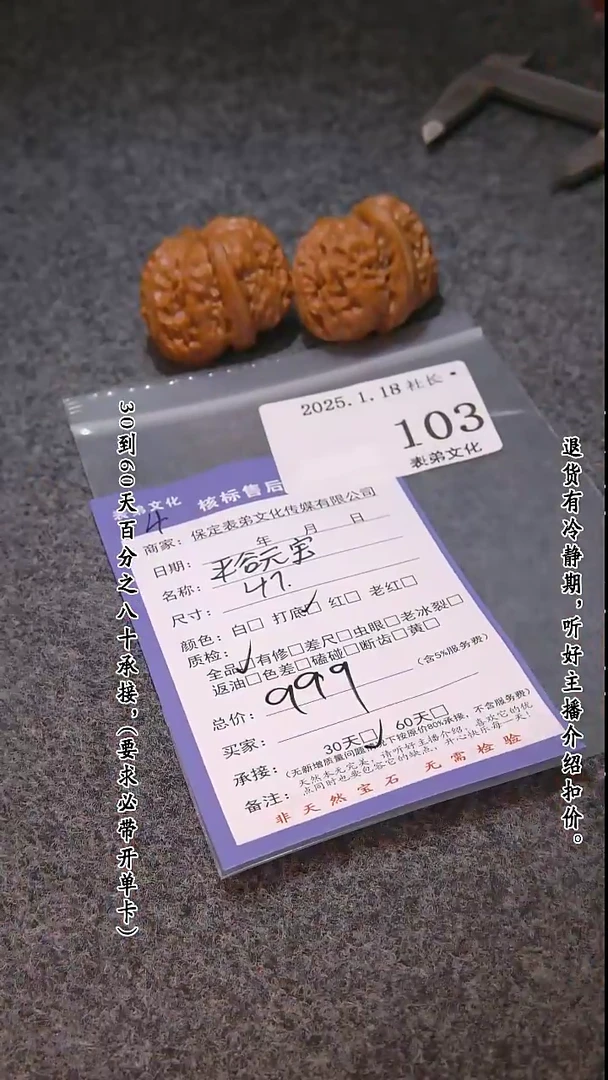 2025.1.18 社长
103
表弟文化
表弟文化 核标售后
商家: 保定表弟文化传媒有限公司
日期: 年 月 日
名称:
尺寸: 41.
颜色: 白□ 打底□ 红□ 老红□
质检: 全品□有修□差尺□虫眼□老冰裂□
返油□色差□磕碰□断齿□黄□
总价: 999 (含5%服务费)
买家:
承接: 30天□ 60天□
(无新增质量问题,况下按原价80%承接,不含服务费)
备注: 天然本无完美,请听好主播介绍,喜欢它的优
点同时也要包容它的缺点,开心快乐每一天!
非天然宝石 无需检验
30到60天百分之八十承接,(要求必带开单卡)
退货有冷静期,听好主播介绍扣价。